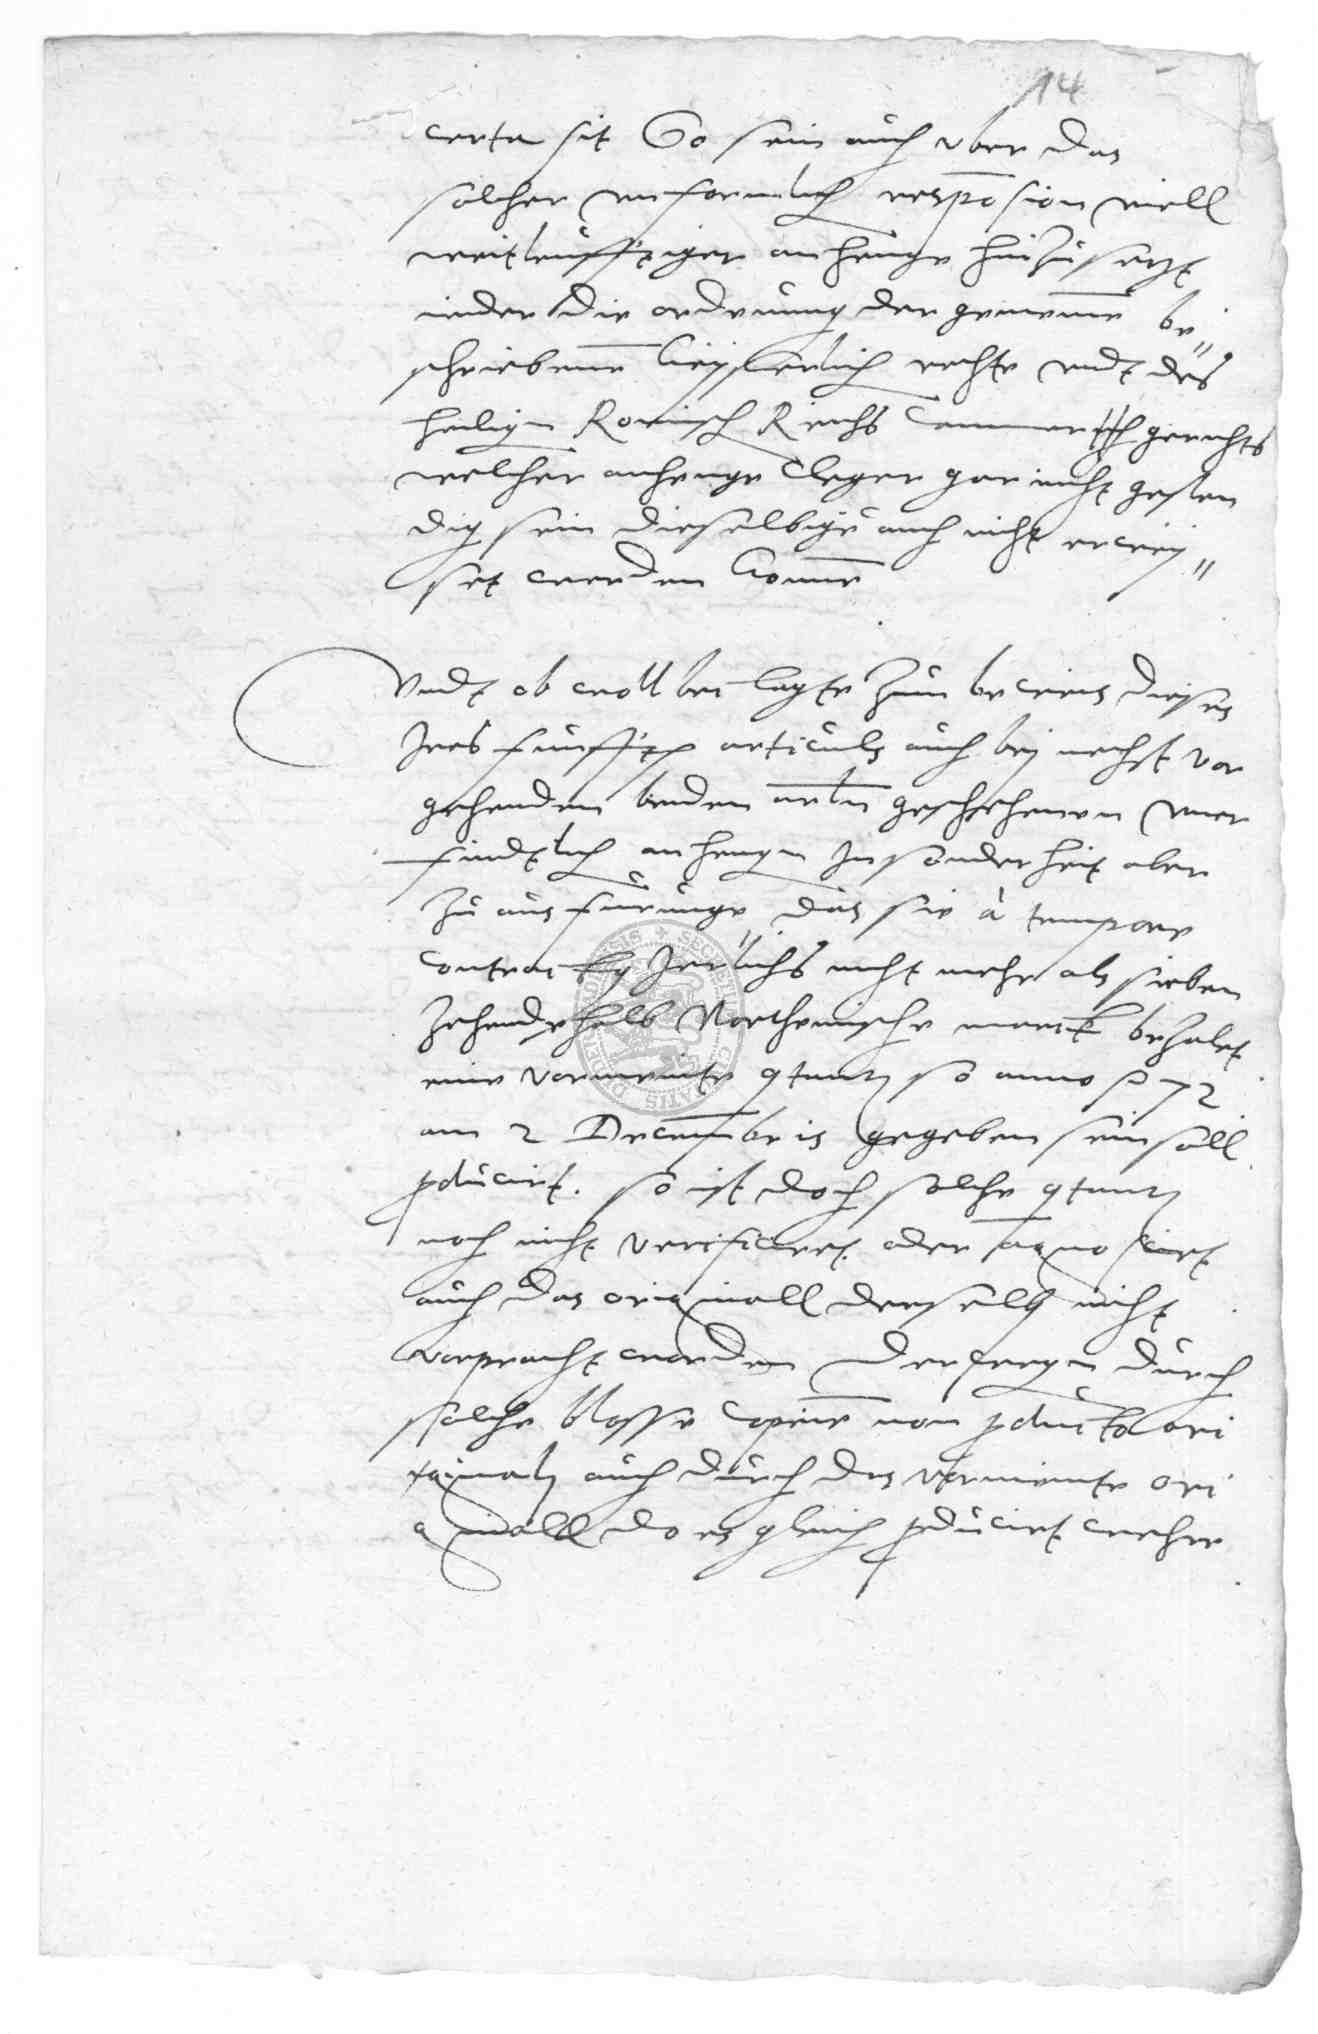 14
certa sit So sein auch uber das
solcher unformlich responsion viell
weitleufftiger anhenge hinzusetzt
wider die ordenung der gemeinē be
schriebenē keyserlich rechte undt des
heiligen Romisch Reichs Cammer gerichts
welcher anhenge Cleger gar nicht gesten
dig sein dieselbige auch nicht erwey
set werden konnē
Undt ob woll beclagte zum beweis dieses
Ires funfften articuls auch bey nechst vor
gehenden beden artln geschehenen uner
findtlich anhengen Insonderheit aber
zu ausfurunge das sie à tempore
contractus Jerlichs nicht mehr als sieben
zehendehalb Northemische marck bezalet
eine vormeinte qtantz so anno 72
am 2 Decembris gegeben sein soll
pducirt. so ist doch solche qtantz
noch nicht verificiret oder agnoscirt
auch das originall derselben nicht
vorpracht worden Derwegen durch
solche blosse Copien non pducto ori
ginali auch durch das vermeinte ori
ginall do es gleich pducirt wehre
SECRETUM CIVITATIS